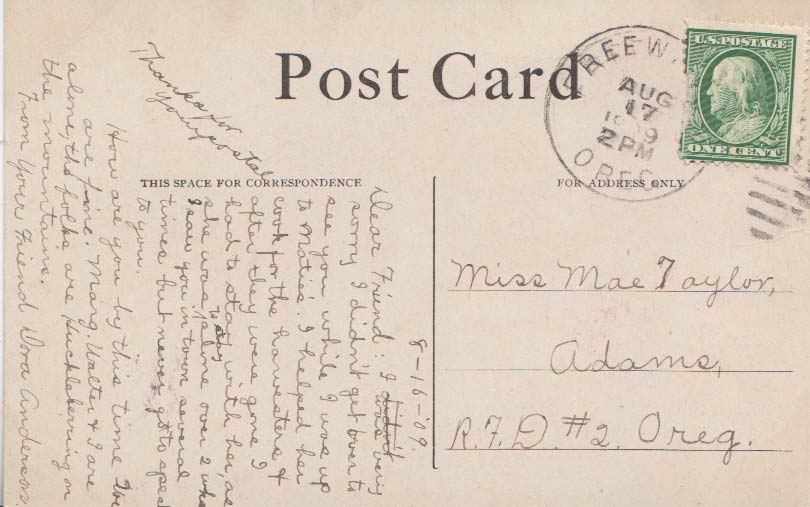 Post Card
U.S. POSTAGE
ONE CENT
FREEW
AUG
17
1909
2 PM
OREG
THIS SPACE FOR CORRESPONDENCE
FOR ADDRESS ONLY
8-16-'09.
Dear Friend: I didn't
was very
sorry I didn't get over to
see you while I was up
to Matie's. I helped her
cook for the harvesters &
after they were gone I
had to stay with her, as
she was to stay alone over 2 wks
I saw you in town several
times but never got to speak
to you.
How are you by this time We
are fine. Marg, Walter & I are
alone, the folks are Huckleberring on
the mountains.
From Your Friend Dora Anderson.
Thanks for
your postal
Miss Mae Taylor,
Adams,
R.F.D. #2. Oreg.